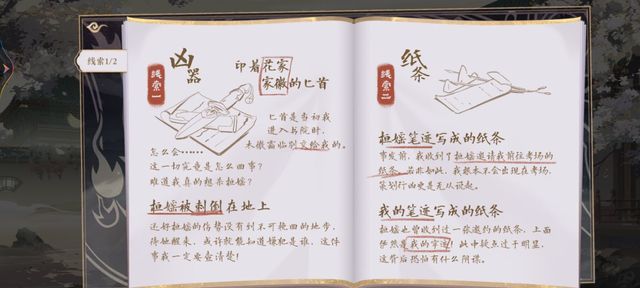 线索1/2
凶器
线索一
印着花家
家徽的匕首
匕首是当初我
进入书院时，
未微霜临别交给我的。
怎么会……
这一切究竟是怎么回事？
难道我真的想杀桓媱？
桓媱被刺倒在地上
还好桓媱的伤势没有到不可挽回的地步，
待她醒来，或许就能知道嫌犯是谁，这件
事我一定要查清楚！
纸条
线索二
桓媱笔迹写成的纸条
事发前，我收到了桓媱邀请我前往考场的
纸条，若非如此，我根本不会出现在考场，
策划行凶更是无从说起。
我的笔迹写成的纸条
桓媱也曾收到过一张邀约的纸条，上面
居然是我的字迹！此中疑点过于明显，
这背后恐怕有什么阴谋。